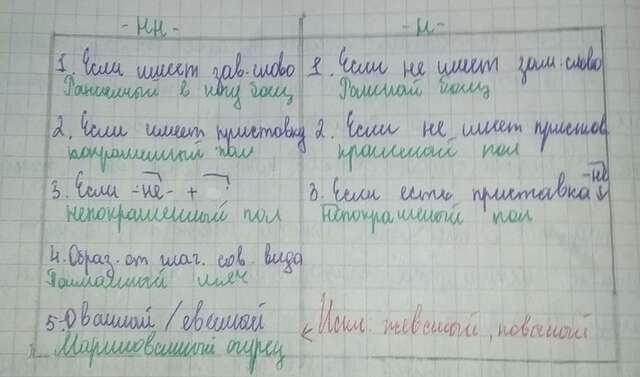 -НН-
-Н-
1. Если имеет зав. слово
Раненный в ногу боец
2. Если имеет приставку
покрашенный пол
3. Если -не- +
непокрашенный пол
4. Образ. от глаг. сов. вида
Пойманный мяч
5. Ованный / еванный
Маринованный огурец
1. Если не имеет зави. слово
Раненый боец
2. Если не имеет пристав
крашеный пол
3. Если есть приставка -не
Некрашеный пол
Искл. жеваный, кованый